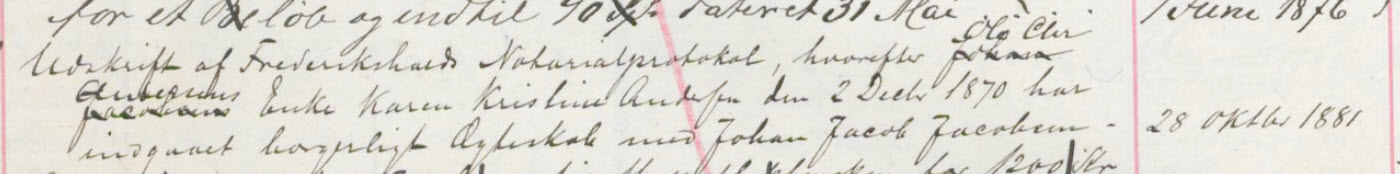 for et Beløb og indtil 90 dateret 31 Mai 1 Juni 1876
Udskrift af Frederikshalds Notarialprotokol, hvorefter Johan Ole Chr
Jacobsens Andersens Enke Karen Kristine Andersen den 2 Decbr 1870 har
indgaaet borgerligt Ægteskab med Johan Jacob Jacobsen - 28 oktbr 1881
for 1200 Kr